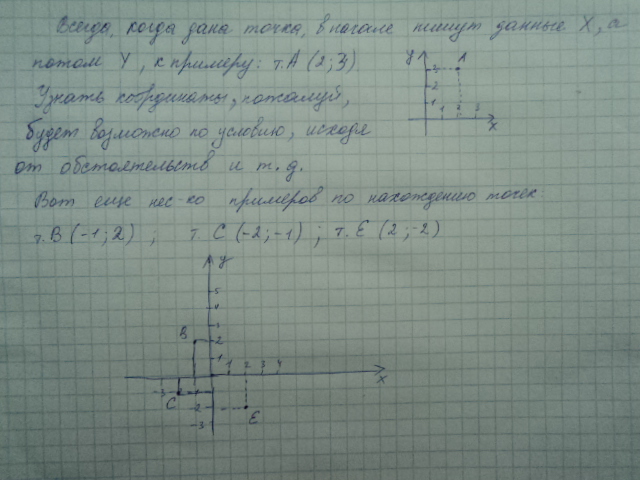 Всегда, когда дана точка, в начале пишут данные X, а
потом Y, к примеру: т. A (2; 3)
Узнать координаты, пожалуй,
будет возможно по условию, исходя
от обстоятельств и т.д.
Вот еще нес-ко примеров по нахождению точек:
т. B (-1; 2) ; т. C (-2; -1) ; т. E (2; -2)
y
A
3
2
1
1 2 3
x
y
5
4
3
B 2
1
1 2 3 4
x
-3 -2 -1
C
-2
E
-3